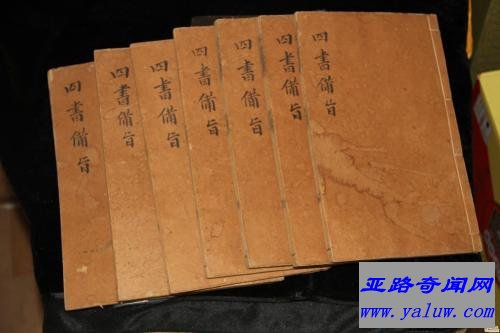 四書備旨
四書備旨
四書備旨
四書備旨
四書備旨
四書備旨
四書備旨
亚路奇闻网
www.yaluw.com